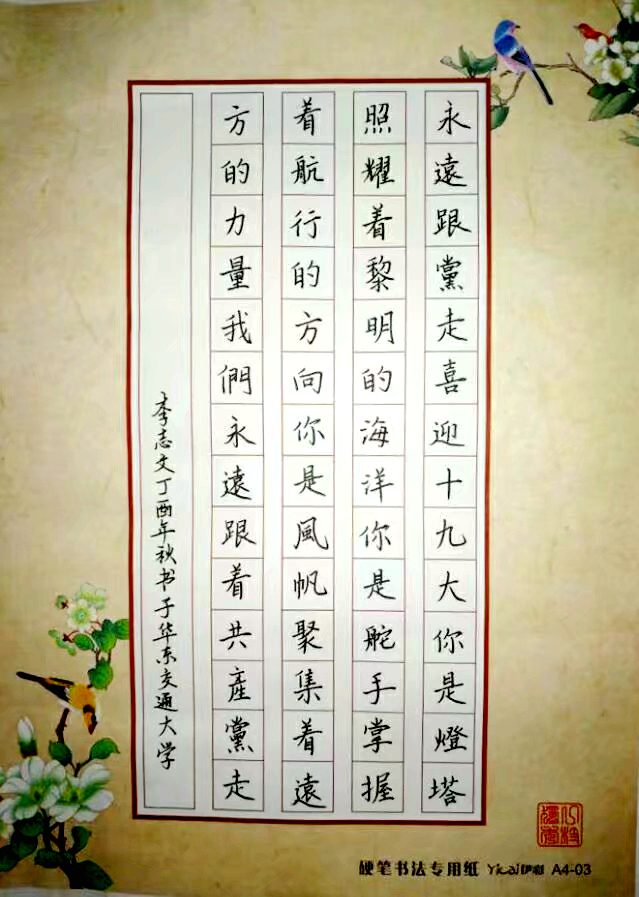 永遠跟黨走喜迎十九大你是燈塔
照耀着黎明的海洋你是舵手掌握
着航行的方向你是風帆聚集着遠
方的力量我們永遠跟着共產黨走
李志文丁酉年秋书于华东交通大学
硬笔书法专用纸 Yicai伊彩 A4-03